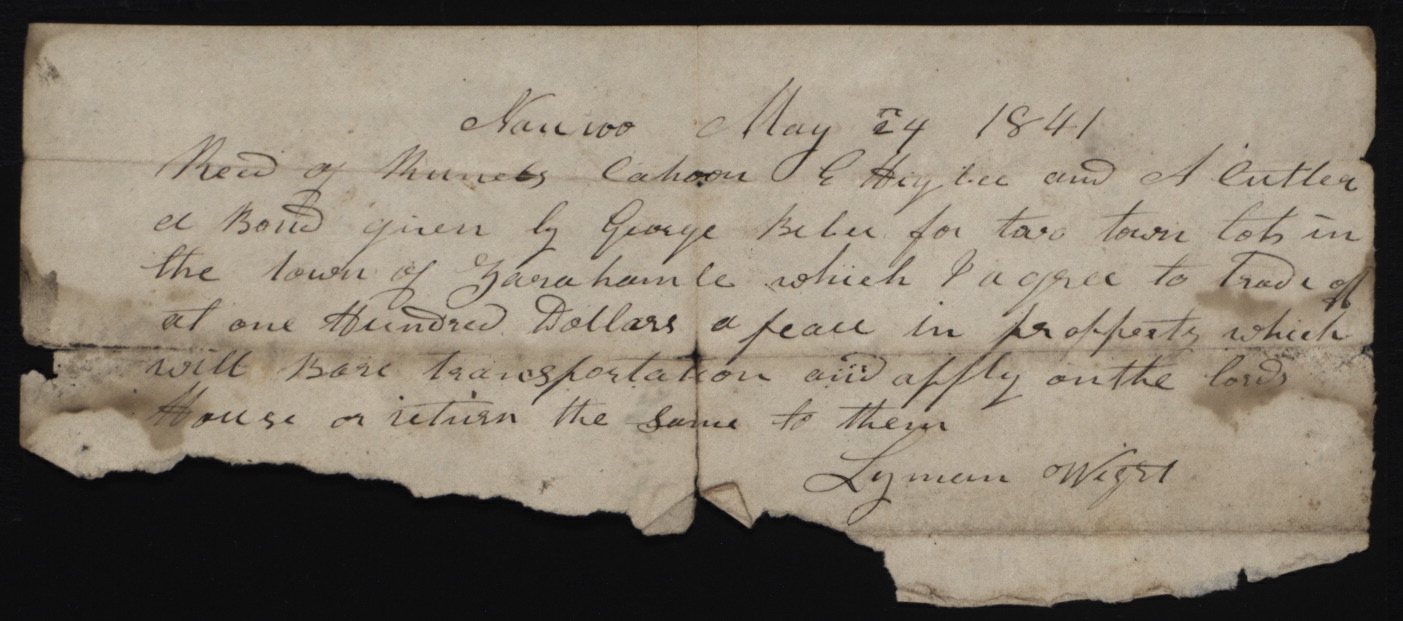 Nauvoo May 24 1841
Recd of Runels Cahoon E Higbee and A Cutler
a Bond given by George Beber for two town lots in
the town of Zarahamle which I agree to trade of
at one Hundred Dollars a peace in propperty which
will Bare transportation and apply on the lords
House or return the same to them
Lyman Wight